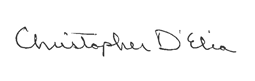 Christopher D'Elia